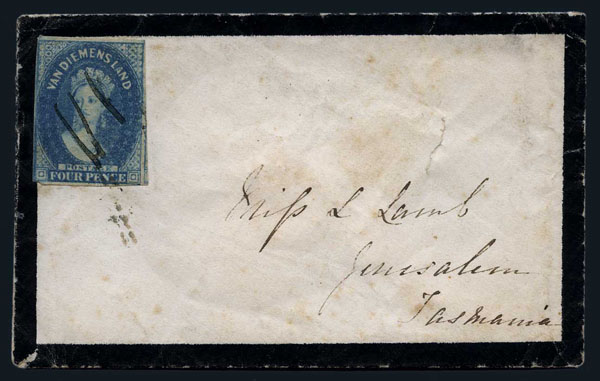 VAN DIEMENS LAND
POSTAGE
FOUR PENCE
Miss L Lamb
Jerusalem
Tasmania